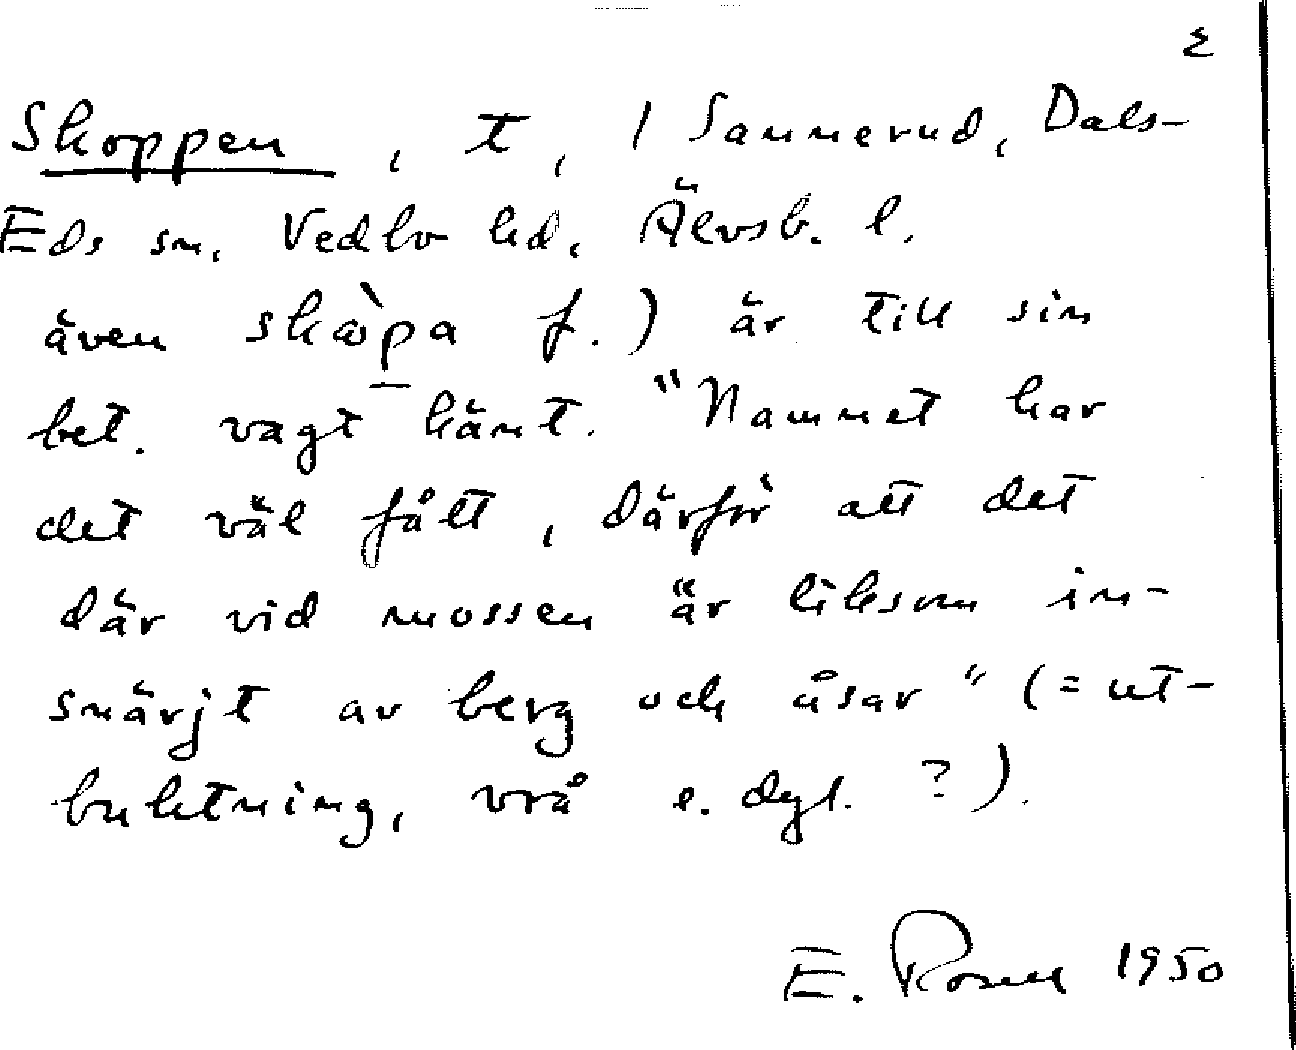 2
Skoppen, t, / Sannerud, Dals-
Eds sn, Vedbo hd, Älvsb. l.
även f.) är till sin
bet. vagt känt. "Namnet har
det väl fått, därför att det
där vid mossen är liksom in-
snärjt av berg och åsar" (= ut-
buktning, vrå e. dyl. ?).
E. Rosell 1950